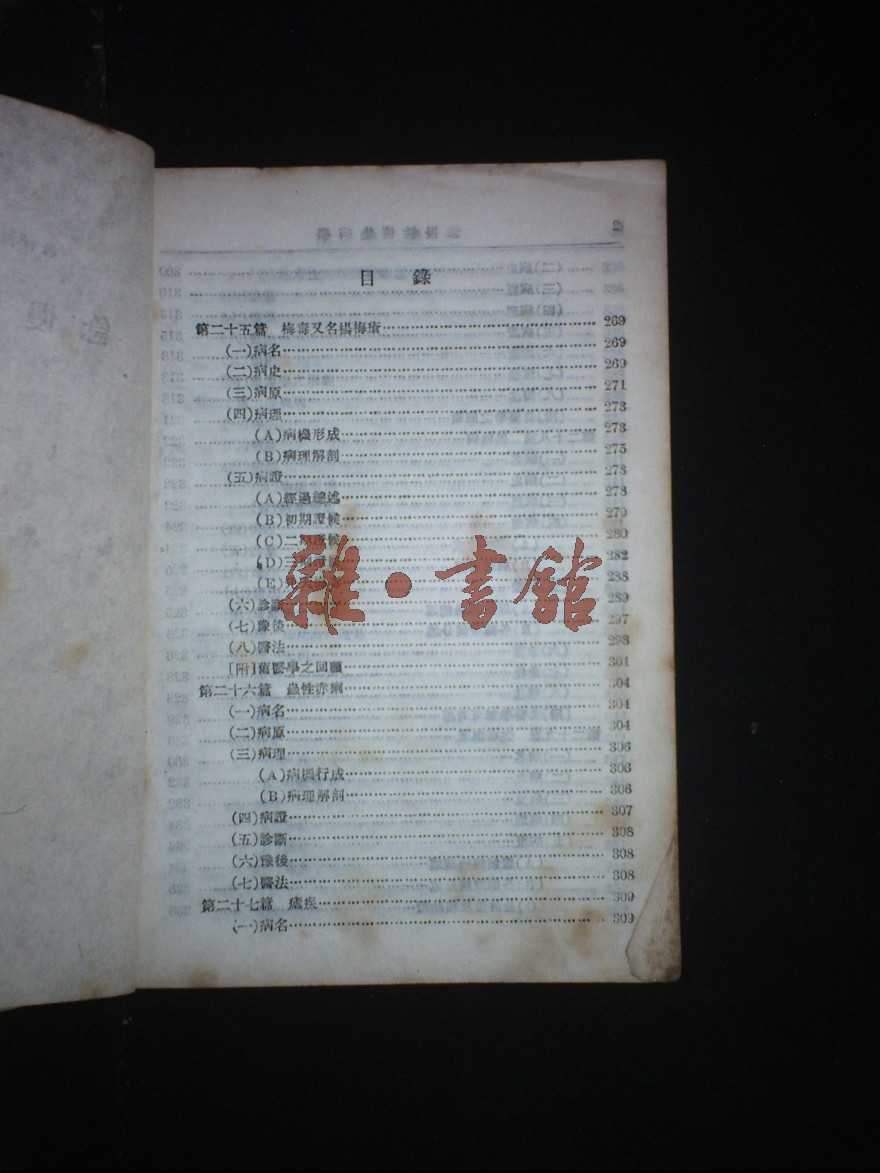 目錄
第二十五篇 梅毒又名楊梅瘡 269
(一)病名 269
(二)病史 269
(三)病原 271
(四)病理 273
(A)病機形成 273
(B)病理解剖 275
(五)病證 278
(A)經過總述 278
(B)初期證候 279
(C)二期證候 280
(D)三期 282
(E) 288
(六)診斷 289
(七)豫後 297
(八)醫法 298
[附]舊醫學之回顧 301
第二十六篇 蟲性赤痢 304
(一)病名 304
(二)病原 304
(三)病理 306
(A)病機行成 306
(B)病理解剖 306
(四)病證 307
(五)診斷 308
(六)豫後 308
(七)醫法 308
第二十七篇 瘧疾 309
(一)病名 309
雜·書館